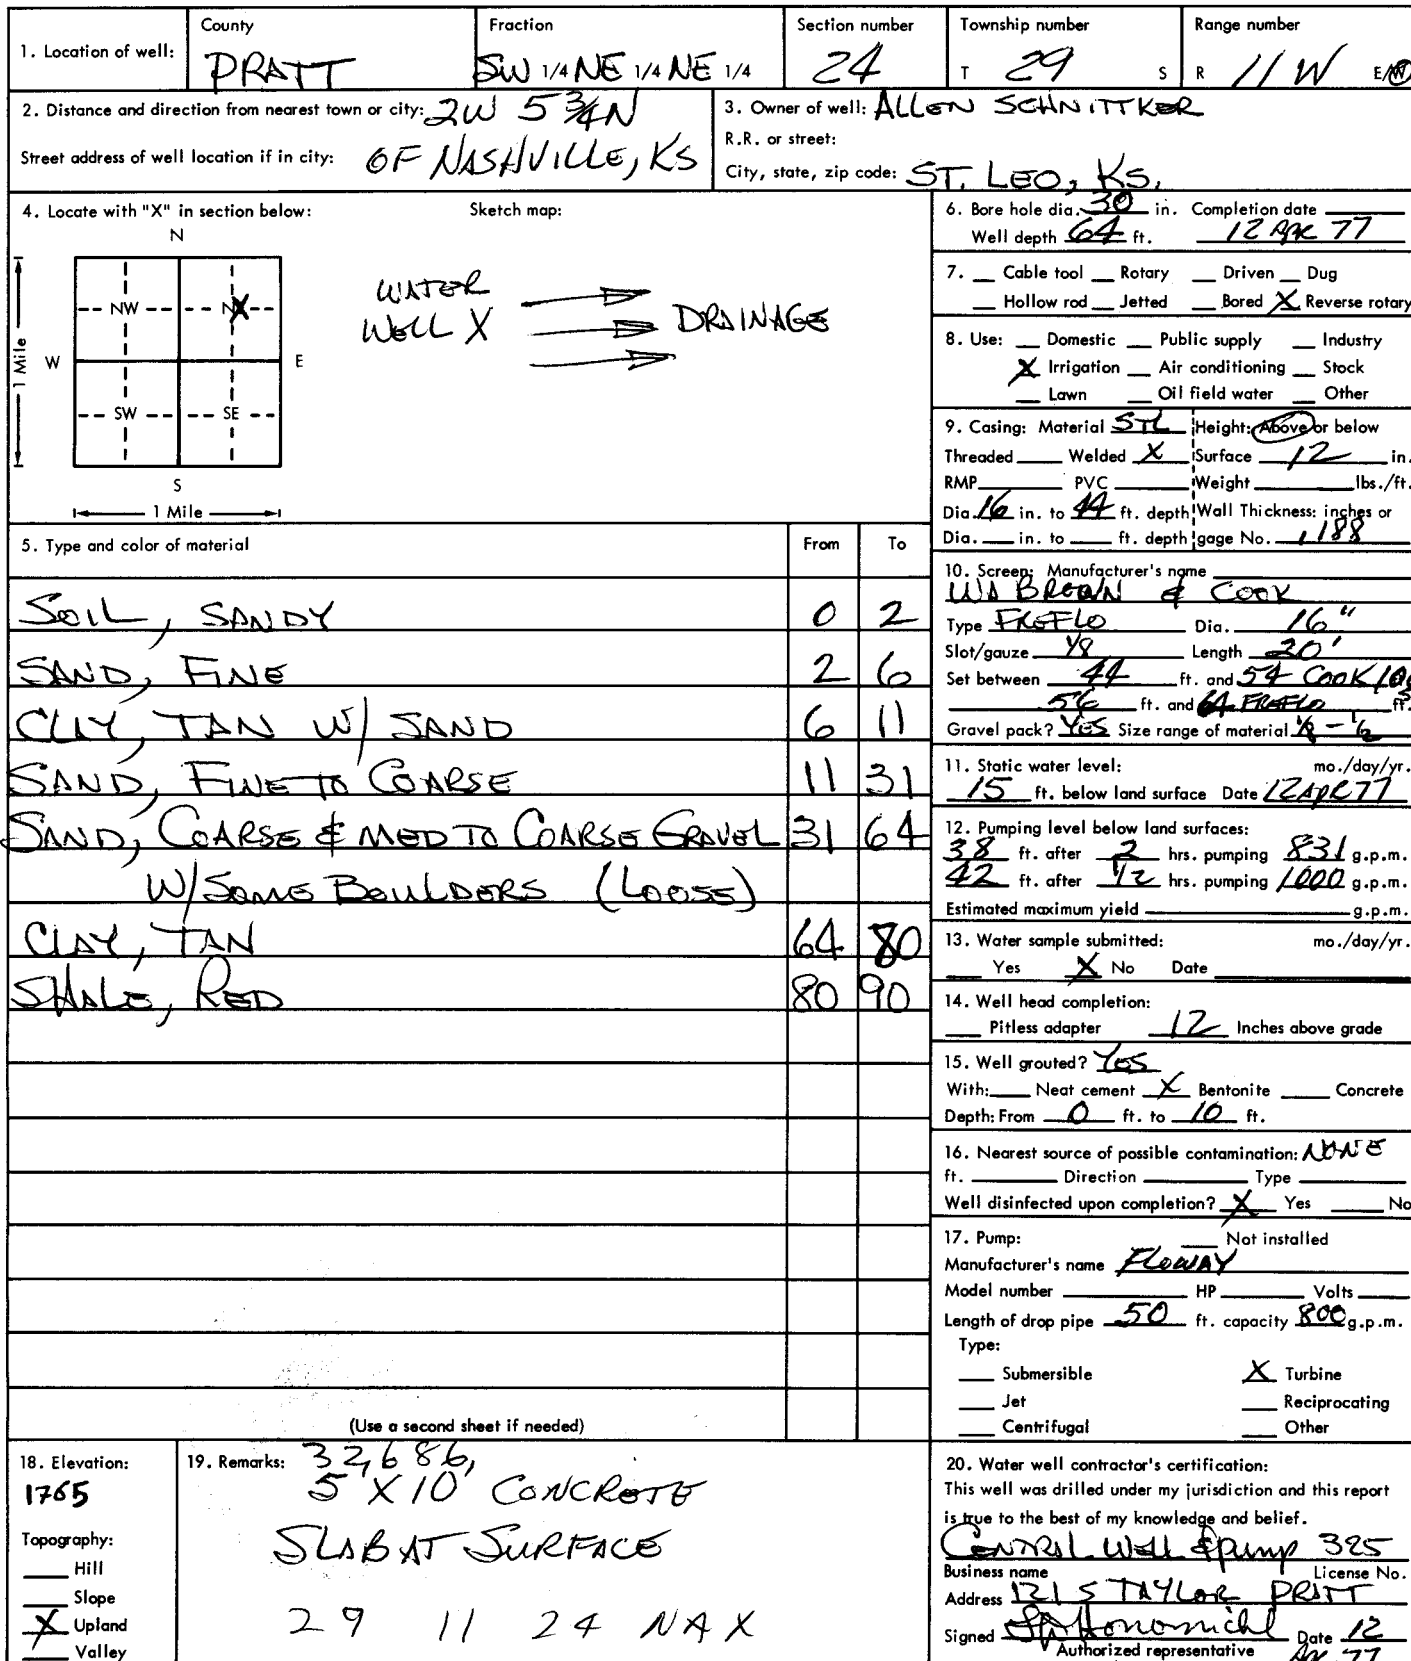 County Fraction Section number Township number Range number
1. Location of well: PRATT SW 1/4 NE 1/4 NE 1/4 24 T 29 S R 11 W E/W
2. Distance and direction from nearest town or city: 2W 5 3/4 N
Street address of well location if in city: OF NASHVILLE, KS
3. Owner of well: ALLEN SCHNITTKER
R.R. or street:
City, state, zip code: ST. LEO, KS.
4. Locate with "X" in section below: Sketch map:
N
NW X
W E
SW SE
S
1 Mile
1 Mile
WATER
WELL X DRAINAGE
5. Type and color of material From To
SOIL, SANDY 0 2
SAND, FINE 2 6
CLAY, TAN W/ SAND 6 11
SAND, FINE TO COARSE 11 31
SAND, COARSE & MED TO COARSE GRAVEL 31 64
W/ SOME BOULDERS (LOOSE)
CLAY, TAN 64 80
SHALE, RED 80 90
(Use a second sheet if needed)
6. Bore hole dia. 30 in. Completion date
Well depth 64 ft. 12 APR 77
7. Cable tool Rotary Driven Dug
Hollow rod Jetted Bored X Reverse rotary
8. Use: Domestic Public supply Industry
X Irrigation Air conditioning Stock
Lawn Oil field water Other
9. Casing: Material STL Height: Above or below
Threaded Welded X Surface 12 in.
RMP PVC Weight lbs./ft.
Dia. 16 in. to 44 ft. depth Wall Thickness: inches or
Dia. in. to ft. depth gage No. .188
10. Screen: Manufacturer's name
BROWN & COOK
Type FREFLO Dia. 16"
Slot/gauze 1/8 Length 20'
Set between 44 ft. and 54 COOK
ft. and 64 FREFLO ft.
Gravel pack? YES Size range of material 1/8 - 1/2
11. Static water level: mo./day/yr.
15 ft. below land surface Date 12 APR 77
12. Pumping level below land surfaces:
38 ft. after 2 hrs. pumping 831 g.p.m.
42 ft. after 1/2 hrs. pumping 1000 g.p.m.
Estimated maximum yield g.p.m.
13. Water sample submitted: mo./day/yr.
Yes X No Date
14. Well head completion:
Pitless adapter 12 Inches above grade
15. Well grouted? YES
With: Neat cement X Bentonite Concrete
Depth: From 0 ft. to 10 ft.
16. Nearest source of possible contamination: NONE
ft. Direction Type
Well disinfected upon completion? X Yes No
17. Pump: Not installed
Manufacturer's name FLOWAY
Model number HP Volts
Length of drop pipe 50 ft. capacity 800 g.p.m.
Type:
Submersible X Turbine
Jet Reciprocating
Centrifugal Other
18. Elevation:
1765
Topography:
Hill
Slope
X Upland
Valley
19. Remarks: 32,686,
5' X 10' CONCRETE
SLAB AT SURFACE
29 11 24 NAX
20. Water well contractor's certification:
This well was drilled under my jurisdiction and this report
is true to the best of my knowledge and belief.
CENTRAL WELL & PUMP 325
Business name License No.
Address 121 S TAYLOR PRATT
Signed Honomichl Date 12
Authorized representative APR 77